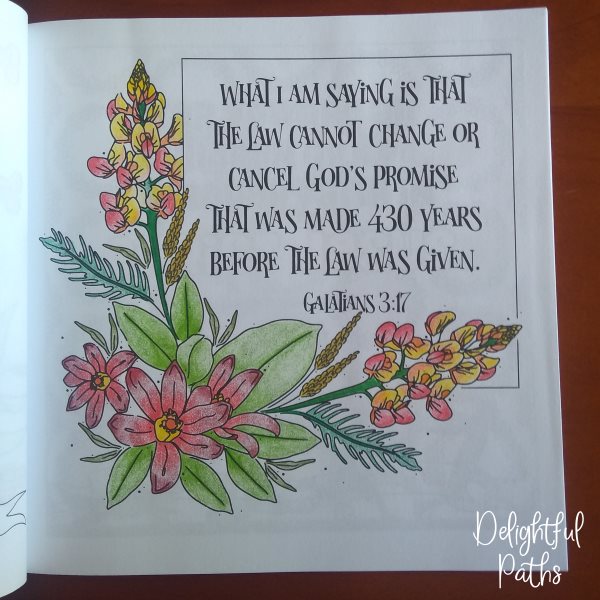 WHAT I AM SAYING IS THAT
THE LAW CANNOT CHANGE OR
CANCEL GOD'S PROMISE
THAT WAS MADE 430 YEARS
BEFORE THE LAW WAS GIVEN.
GALATIANS 3:17
Delightful
Paths